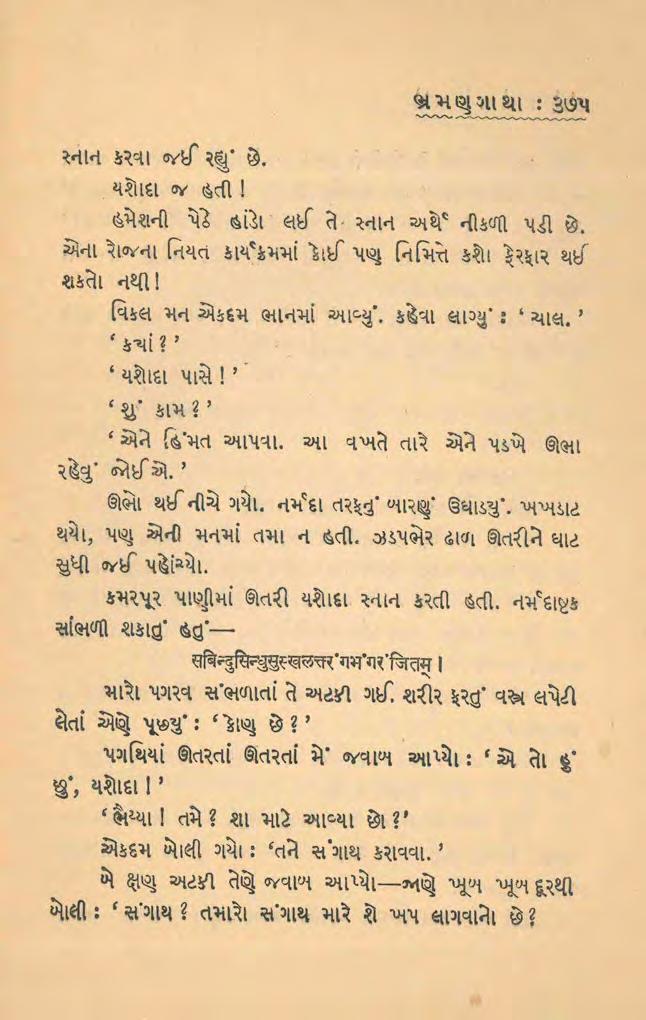 ભ્રમણગાથા : ૩૭૫
સ્નાન કરવા જઈ રહ્યું છે.
યશોદા જ હતી !
હમેશની પેઠે હાંડો લઈ તે સ્નાન અર્થે નીકળી પડી છે.
એના રોજના નિયત કાર્યક્રમમાં કોઈ પણ નિમિત્તે કશો ફેરફાર થઈ
શકતો નથી !
વિકલ મન એકદમ ભાનમાં આવ્યું. કહેવા લાગ્યું : ‘ ચાલ. ’
‘ ક્યાં ? ’
‘ યશોદા પાસે ! ’
‘ શું કામ ? ’
‘ એને હિંમત આપવા. આ વખતે તારે એને પડખે ઊભા
રહેવું જોઈએ. ’
ઊભો થઈ નીચે ગયો. નર્મદા તરફનું બારણું ઉઘાડ્યું. ખખડાટ
થયો, પણ એની મનમાં તમા ન હતી. ઝડપભેર ઢાળ ઊતરીને ઘાટ
સુધી જઈ પહોંચ્યો.
કમરપૂર પાણીમાં ઊતરી યશોદા સ્નાન કરતી હતી. નર્મદાષ્ટક
સાંભળી શકાતું હતું—
सबिन्दुसिन्धुसुस्खलत्तरंगभंगरंजितम् ।
મારો પગરવ સંભળાતાં તે અટકી ગઈ. શરીર ફરતું વસ્ત્ર લપેટી
લેતાં એણે પૂછ્યું : ‘ કોણ છે ? ’
પગથિયાં ઊતરતાં ઊતરતાં મેં જવાબ આપ્યો : ‘ એ તો હું
છું, યશોદા ! ’
‘ ભૈય્યા ! તમે ? શા માટે આવ્યા છો ?’
એકદમ બોલી ગયો : ‘તને સંગાથ કરાવવા. ’
બે ક્ષણ અટકી તેણે જવાબ આપ્યો—જાણે ખૂબ ખૂબ દૂરથી
બોલી : ‘ સંગાથ ? તમારો સંગાથ મારે શે ખપ લાગવાનો છે ?